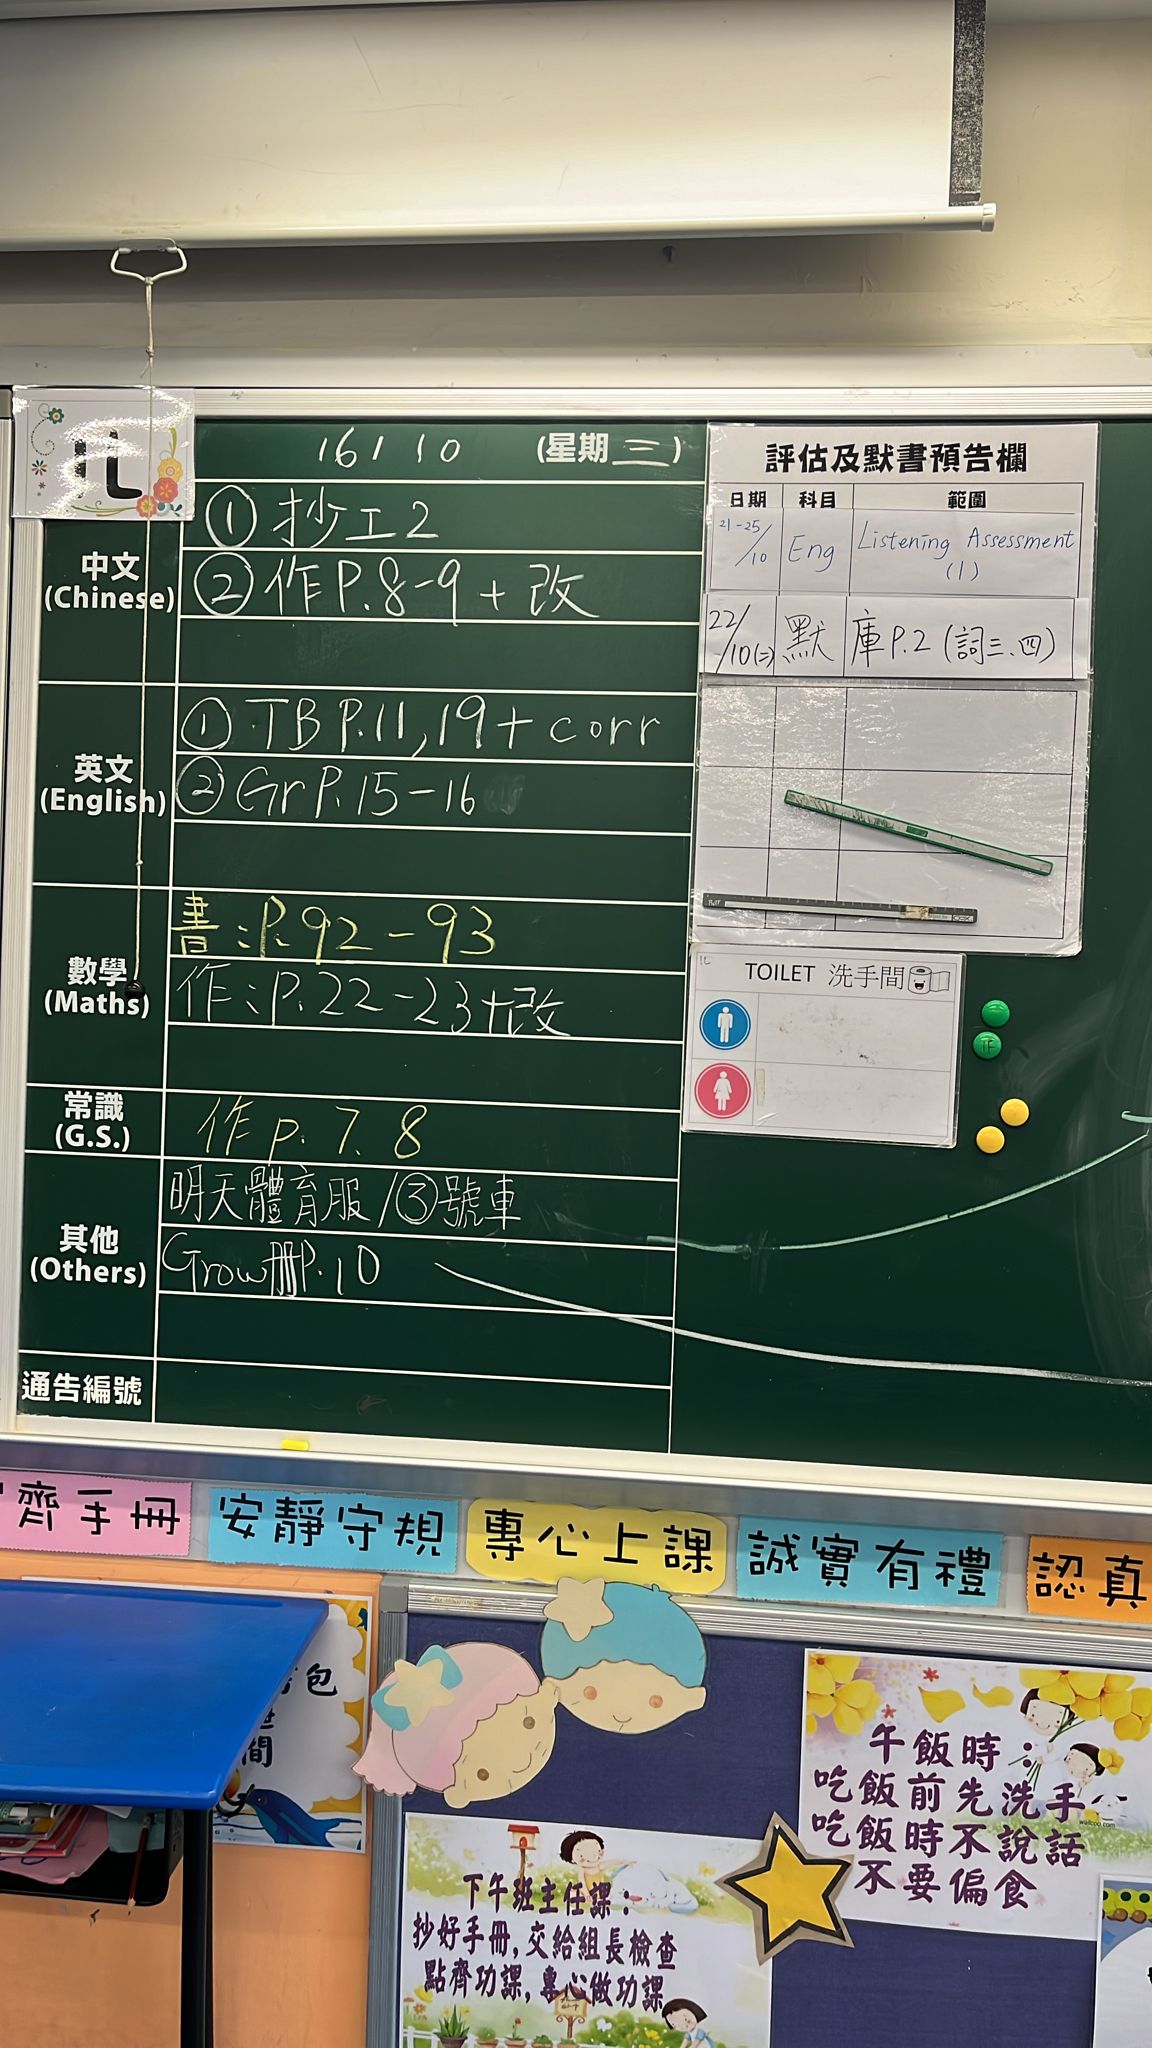 1L
16 / 10 (星期三)
中文
(Chinese)
① 抄工2
② 作P.8-9 + 改
英文
(English)
① TB P.11, 19 + corr
② Gr P.15-16
數學
(Maths)
書:P.92-93
作:P.22-23+改
常識
(G.S.)
作 p. 7. 8
其他
(Others)
明天體育服/③號車
Grow冊P.10
通告編號
評估及默書預告欄
日期 科目 範圍
21-25/10 Eng Listening Assessment (1)
22/10(二) 默 庫P.2 (詞三、四)
1L
TOILET 洗手間
齊手冊
安靜守規
專心上課
誠實有禮
認真
包
間
午飯時:
吃飯前先洗手
吃飯時不說話
不要偏食
下午班主任課:
抄好手冊,交給組長檢查
點齊功課,專心做功課